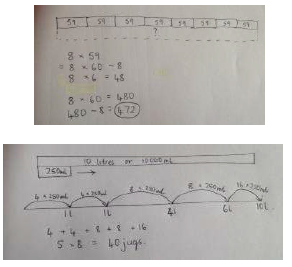 59 59 59 59 59 59 59 59
?
8 × 59
= 8 × 60 - 8
8 × 6 = 48
8 × 60 = 480
480 - 8 = 472
10 litres or 10000ml
250ml
4 × 250ml 4 × 250ml 8 × 250ml 8 × 250ml 16 × 250ml
1L 4L 6L 10L
4 + 4 + 8 + 8 + 16
5 × 8 = 40 jugs.